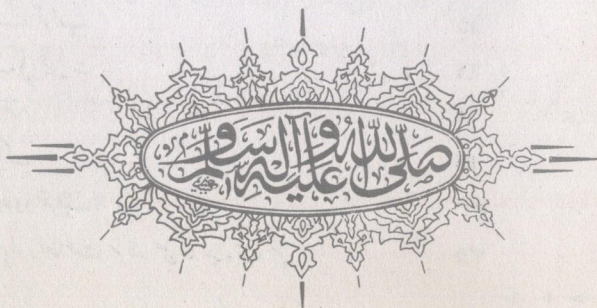 صَلَّى اللهُ عَلَيْهِ وَآلِهِ وَسَلَّمَ